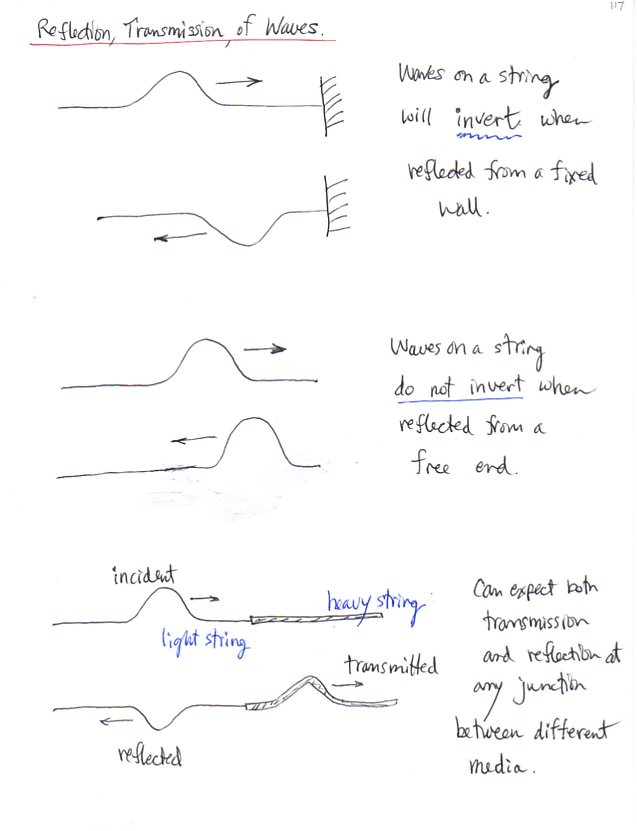 117
Reflection, Transmission, of Waves.
Waves on a string
will invert when
reflected from a fixed
wall.
Waves on a string
do not invert when
reflected from a
free end.
incident
heavy string
light string
transmitted
reflected
Can expect both
transmission
and reflection at
any junction
between different
media.